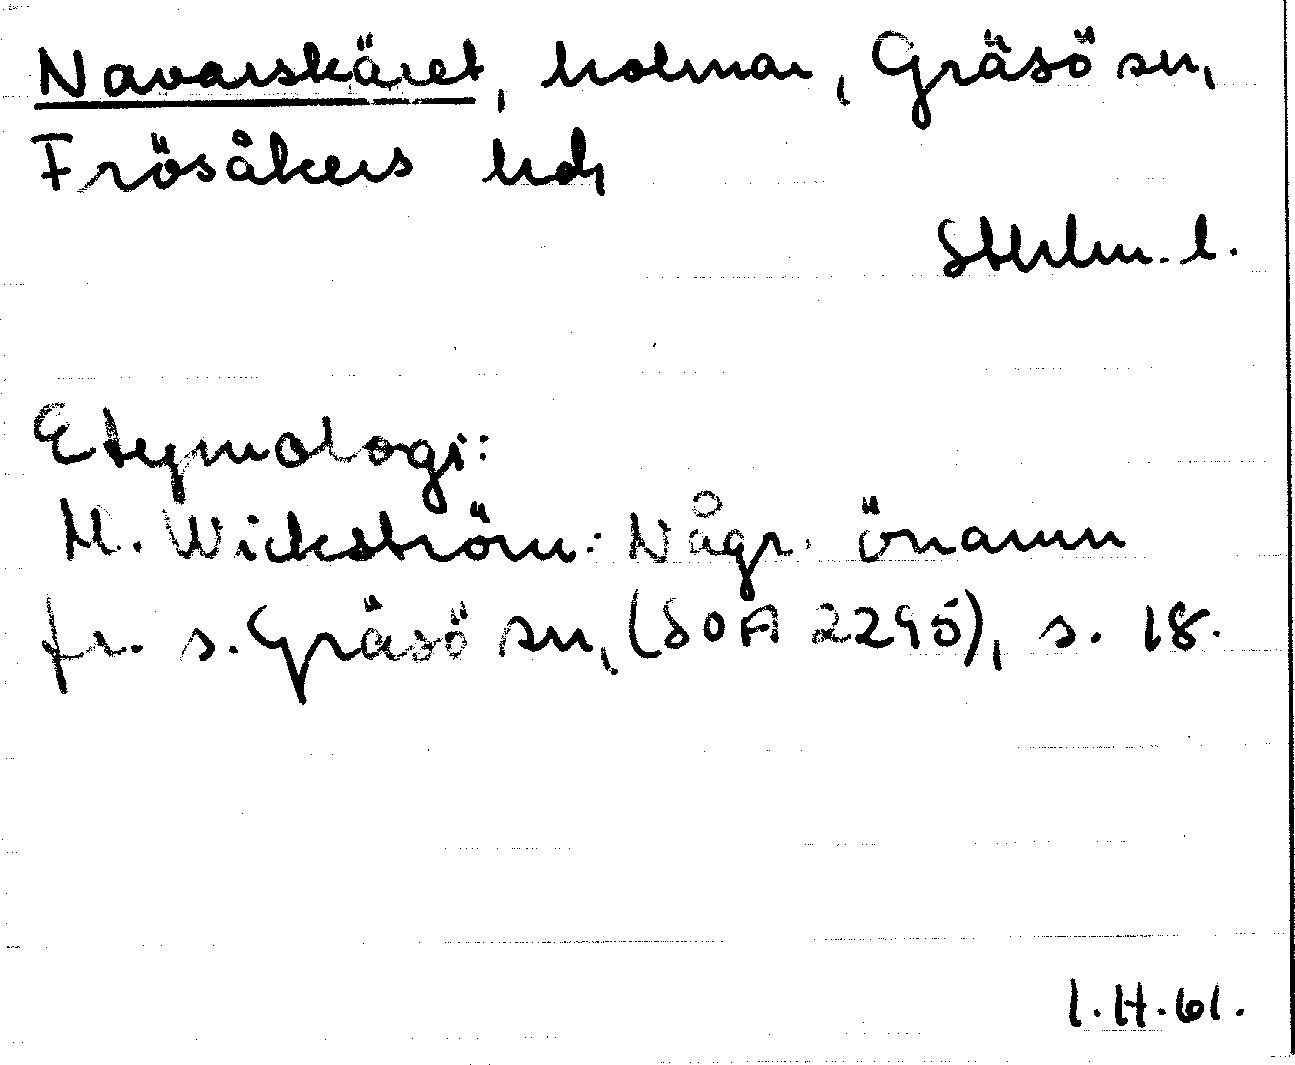 Navarskäret, holmar, Gräsö sn,
Frösåkers hd,
Sthlm. l.
Etymologi:
M. Wickström: Någr. önamn
fr. s. Gräsö sn, (SOA 2295), s. 18.
I.H.61.